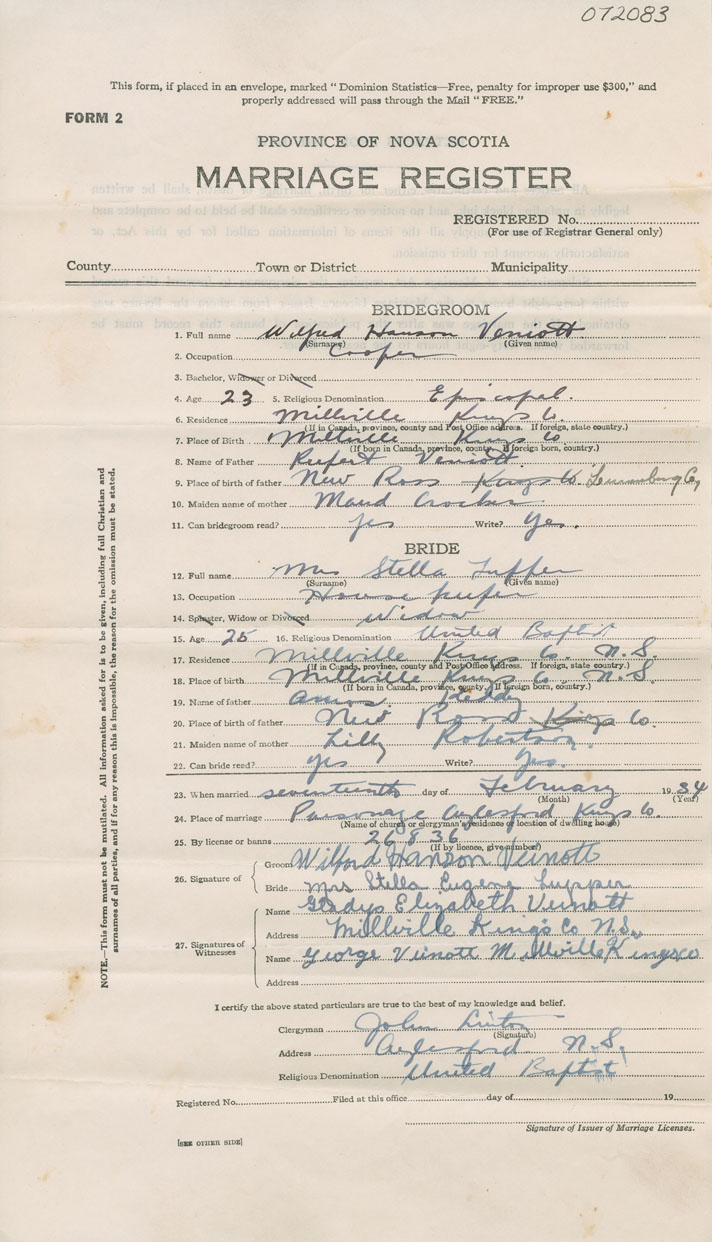 072083
This form, if placed in an envelope, marked "Dominion Statistics—Free, penalty for improper use $300," and
properly addressed will pass through the Mail "FREE."
FORM 2
PROVINCE OF NOVA SCOTIA
MARRIAGE REGISTER
REGISTERED No.
(For use of Registrar General only)
County Town or District Municipality
BRIDEGROOM
1. Full name Wilfred Hanson Veniott
(Surname) (Given name)
2. Occupation Cooper
3. Bachelor, Widower or Divorced
4. Age 23 5. Religious Denomination Episcopal.
6. Residence Millville Kings Co.
(If in Canada, province, county and Post Office address. If foreign, state country.)
7. Place of Birth Millville Kings Co
(If born in Canada, province, county. If foreign born, country.)
8. Name of Father Rupert Veniott
9. Place of birth of father New Ross Kings Co. Lunenburg Co,
10. Maiden name of mother Maud Crocker
11. Can bridegroom read? yes Write? yes.
BRIDE
12. Full name Mrs Stella Tupper
(Surname) (Given name)
13. Occupation House keeper
14. Spinster, Widow or Divorced Widow
15. Age 25 16. Religious Denomination United Baptist
17. Residence Millville Kings Co. N.S.
(If in Canada, province, county and Post Office address. If foreign, state country.)
18. Place of birth Millville Kings Co. N.S.
(If born in Canada, province, county. If foreign born, country.)
19. Name of father Amos
20. Place of birth of father New Ross Kings Co.
21. Maiden name of mother Lilly Robertson.
22. Can bride read? yes Write? yes.
23. When married seventeenth day of February 1934
(Month) (Year)
24. Place of marriage Parsonage Aylesford Kings Co.
(Name of church or clergyman's residence or location of dwelling house)
25. By license or banns 26836
(If by licence, give number)
26. Signature of
Groom Wilford Hanson Veinott
Bride Mrs Stella Eugene Tupper
27. Signatures of Witnesses
Name Gladys Elizabeth Veinott
Address Millville Kings Co N.S.
Name George Veinott Millville Kings co
Address
I certify the above stated particulars are true to the best of my knowledge and belief.
Clergyman John Linton
(Signature)
Address Aylesford N.S.
Religious Denomination United Baptist
Registered No. Filed at this office day of 19
Signature of Issuer of Marriage Licenses.
[SEE OTHER SIDE]
NOTE.—This form must not be mutilated. All information asked for is to be given, including full Christian and
surnames of all parties, and if for any reason this is impossible, the reason for the omission must be stated.